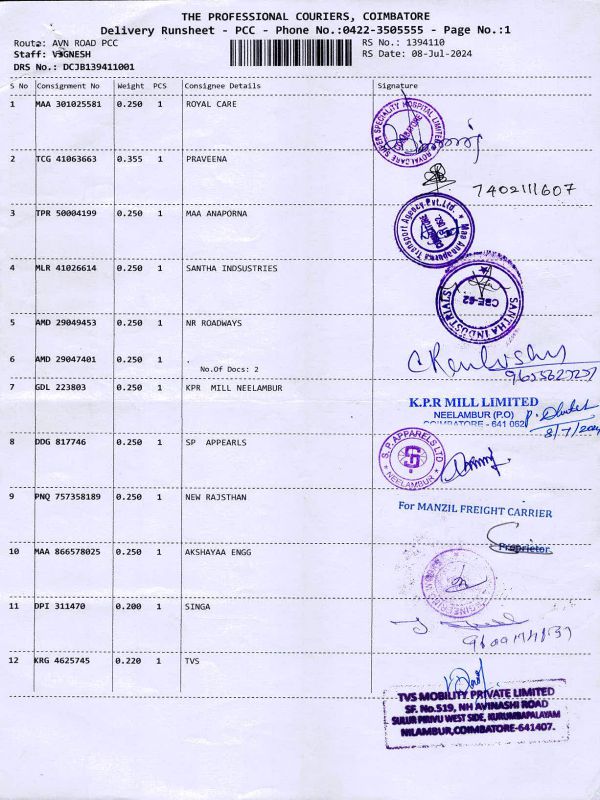 THE PROFESSIONAL COURIERS, COIMBATORE
Delivery Runsheet - PCC - Phone No.:0422-3505555 - Page No.:1
Route: AVN ROAD PCC
RS No.: 1394110
Staff: VIGNESH
RS Date: 08-Jul-2024
DRS No.: DCJB139411001
S No Consignment No Weight PCS Consignee Details Signature
1 MAA 301025581 0.250 1 ROYAL CARE
ROYAL CARE SUPER SPECIALITY HOSPITAL LIMITED
COIMBATORE
2 TCG 41063663 0.355 1 PRAVEENA
7402111607
3 TPR 50004199 0.250 1 MAA ANAPORNA
Maa Annapurna Transport Agency Pvt.Ltd.
4 MLR 41026614 0.250 1 SANTHA INDSUSTRIES
SANTHA INDUSTRIALS
CBE-62
5 AMD 29049453 0.250 1 NR ROADWAYS
6 AMD 29047401 0.250 1
No.Of Docs: 2
7 GDL 223803 0.250 1 KPR MILL NEELAMBUR
K.P.R MILL LIMITED
NEELAMBUR (P.O)
COIMBATORE - 641 062
8/7/2024
8 DDG 817746 0.250 1 SP APPEARLS
S.P. APPARELS LTD
NEELAMBUR
9 PNQ 757358189 0.250 1 NEW RAJSTHAN
For MANZIL FREIGHT CARRIER
Proprietor
10 MAA 866578025 0.250 1 AKSHAYAA ENGG
11 DPI 311470 0.200 1 SINGA
12 KRG 4625745 0.220 1 TVS
TVS MOBILITY PRIVATE LIMITED
SF. No.519, NH AVINASHI ROAD
SULUR PIRIVU WEST SIDE, KURUMBAPALAYAM
NILAMBUR,COIMBATORE-641407.